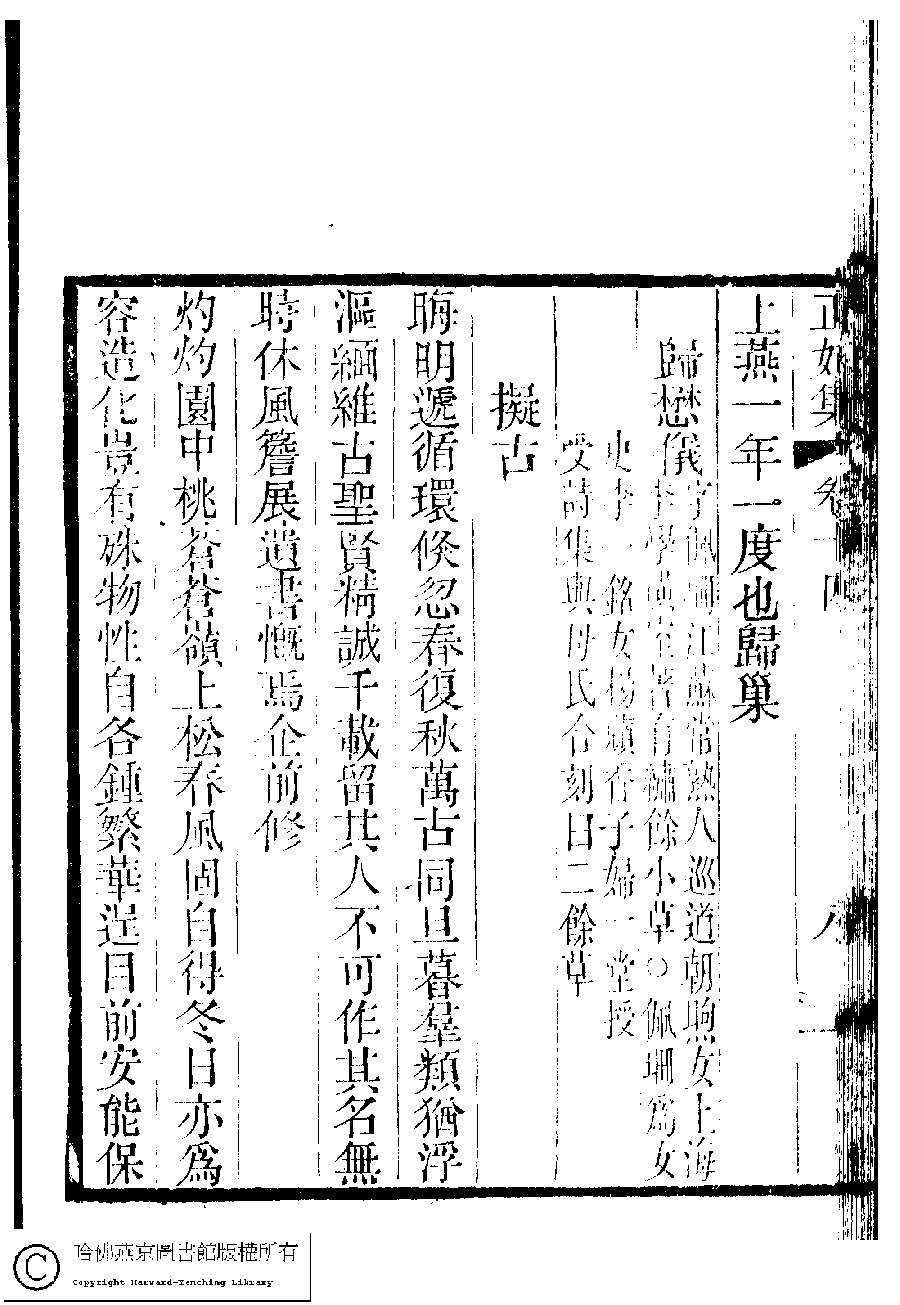 正始集 卷十四 八
上燕一年一度也歸巢
歸懋儀字佩珊江蘇常熟人巡道朝煦女上海
李學璜室著有繡餘小草○佩珊爲女
史李一銘女楊績春子婦一堂授
受詩集與母氏合刻曰二餘草
擬古
晦明遞循環倐忽春復秋萬古同旦暮羣類猶浮
漚緬維古聖賢精誠千載留其人不可作其名無
時休風簷展遺書慨焉企前修
灼灼園中桃蒼蒼嶺上松春風固自得冬日亦爲
容造化豈有殊物性自各鍾繁華逞目前安能保
哈佛燕京圖書館版權所有
Copyright Harvard-Yenching Library